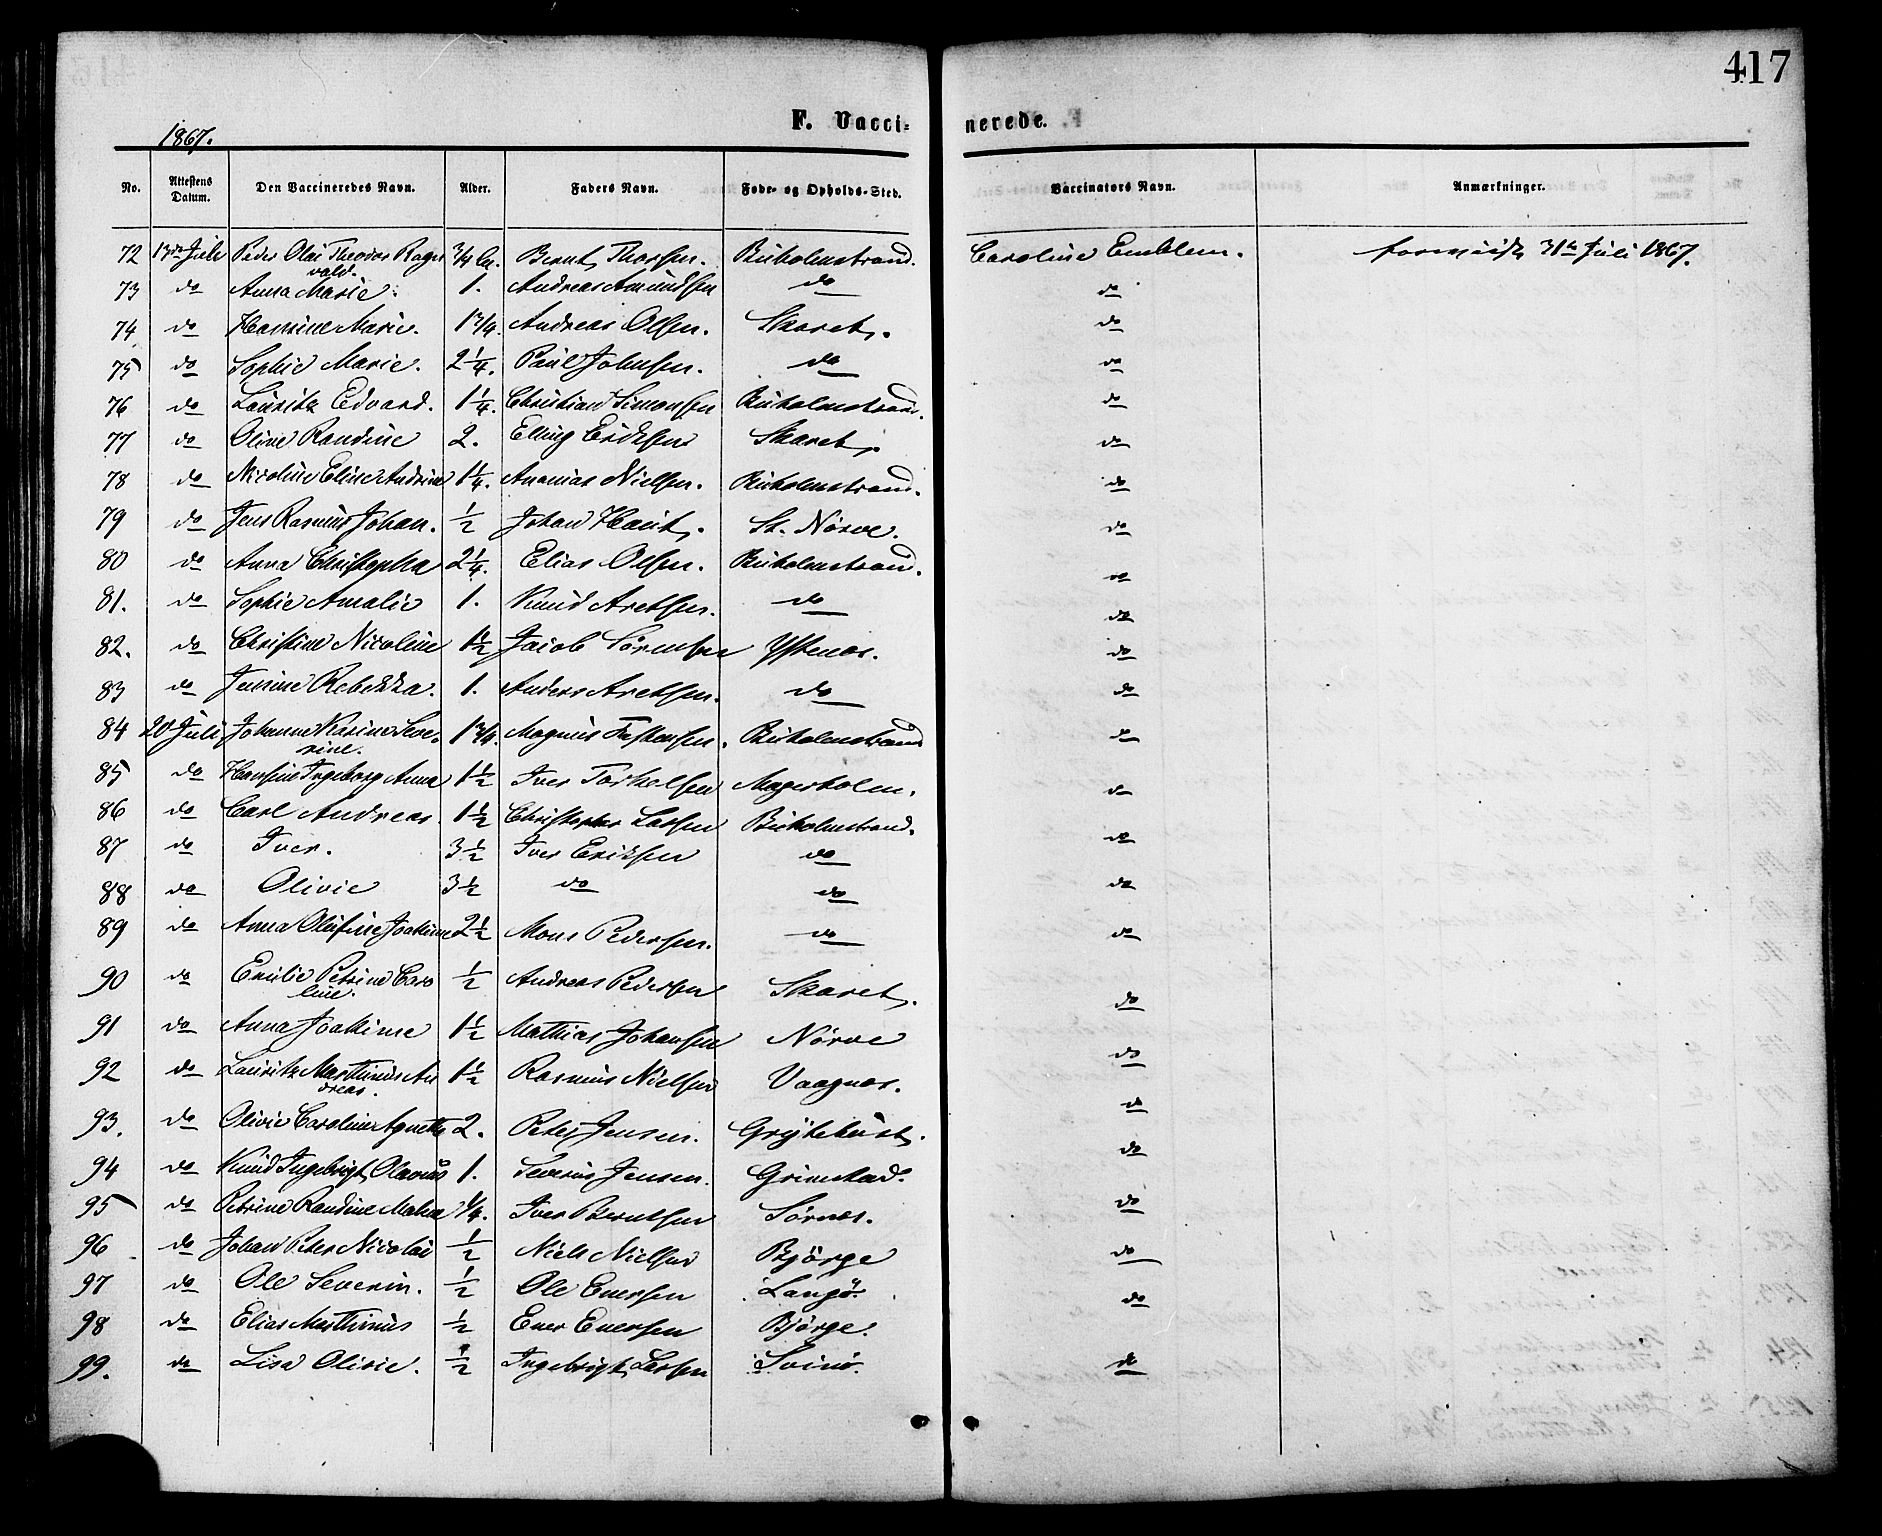 417
F. Vacci- nerede.
1867.
No. Attestens Datum. Den Vaccineredes Navn. Alder. Faders Navn. Føde- og Opholds-Sted. Vaccinators Navn. Anmærkninger.
72 13de Juli Peder Olai Theodor Rag 3/4 Bernt Thorsen. Buholmstrand. Caroline Emblem. 31te Juli 1867.
vald.
73 do Anna Marie. 1. Andreas Amundsen do do
74 do Hansine Marie. 1 3/4 Andreas Olsen. Skaret. do
75 do Sophie Marie. 2 1/4. Paul Johnsen. do do
76 do Lauritz Edvard. 1 1/4. Christian Simonsen Buholmstrand. do
77 do Oline Randine 2. Elling Eriksen Skaret. do
78 do Nicoline Eline Andrine 1 1/4. Ananias Nielsen. Buholmstrand. do
79 do Jens Rasmus Johan. 1/2 Johan St. Nörve. do
80 do Anna Christopha 2 1/4. Elias Olsen. Buholmstrand. do
81. do Sophie Amalie 1. Knud Aretsen. do do
82. do Christine Nicoline 1 1/2 Jacob Sörensen Ystenes. do
83 do Jensine Rebekka. 1. Anders Aretsen. do do
84 20 Juli Johanne Karine Seve- 1 3/4. Magnus Buholmstrand do
rine.
85 do Hansine Ingeborg Anna 1 1/2 Iver Torkelsen Magerholm. do
86 do Carl Andreas. 1 1/2 Christopher Larsen Buholmstrand. do
87 do Iver. 3 1/2 Iver Eriksen do do
88 do Olivie 3 1/2 do do do
89 do Anna Olufine Joakime 2 1/2 Mons Pedersen. do do
90 do Emilie Petrine Caro 1/2 Andreas Pedersen Skaret. do
line.
91 do Anna Joakime 1 1/2 Mathias Johansen Nörve do
92 do Lauritz Marthinus An 1 1/2 Rasmus Nielsen Vaagnes. do
dreas.
93. do Olivie Caroline Agnette 2. Peter Jensen. Grytehust. do
94 do Knud Ingebrigt Olavus 1. Severin Jensen. Grimstad. do
95 do Petrine Randine Malene 1/4. Iver Berntsen Sörnes. do
96 do Johan Peter Nicolai 1/2 Niels Nielsen Björge do
97 do Ole Severin. 1/2 Ole Eversen Langö. do
98 do Elias Marthinus 1/2 Ever Eversen Björge.
99. do Lisa Olivie. 1/2 Ingebrigt Larsen Svinö. do